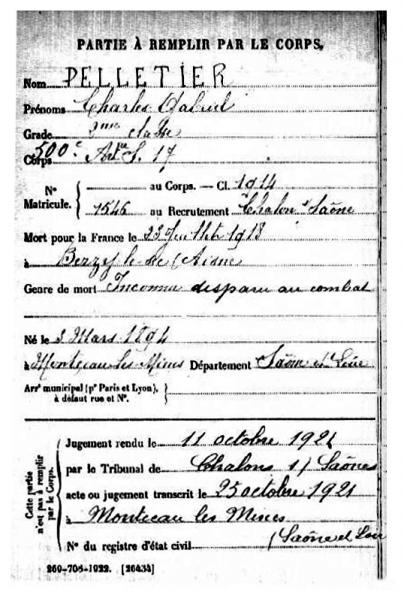 PARTIE À REMPLIR PAR LE CORPS.
Nom PELLETIER
Prénoms Charles Gabriel
Grade 2me classe
Corps 500e Art S. 17
No Matricule. au Corps. — Cl. 1914
1546 au Recrutement Chalon s/ Saône
Mort pour la France le 23 juillet 1918
à Berzy le Sec (Aisne
Genre de mort Inconnu disparu au combat
Né le 3 Mars 1894
à Montceau les Mines Département Saône et Loire
Arrt municipal (pr Paris et Lyon),
à défaut rue et No.
Cette partie n'est pas à remplir par le Corps.
Jugement rendu le 11 octobre 1921
par le Tribunal de Chalons s/ Saône
acte ou jugement transcrit le 25 octobre 1921
à Montceau les Mines
No du registre d'état civil (Saône et Loire
269-708-1922. [26434]